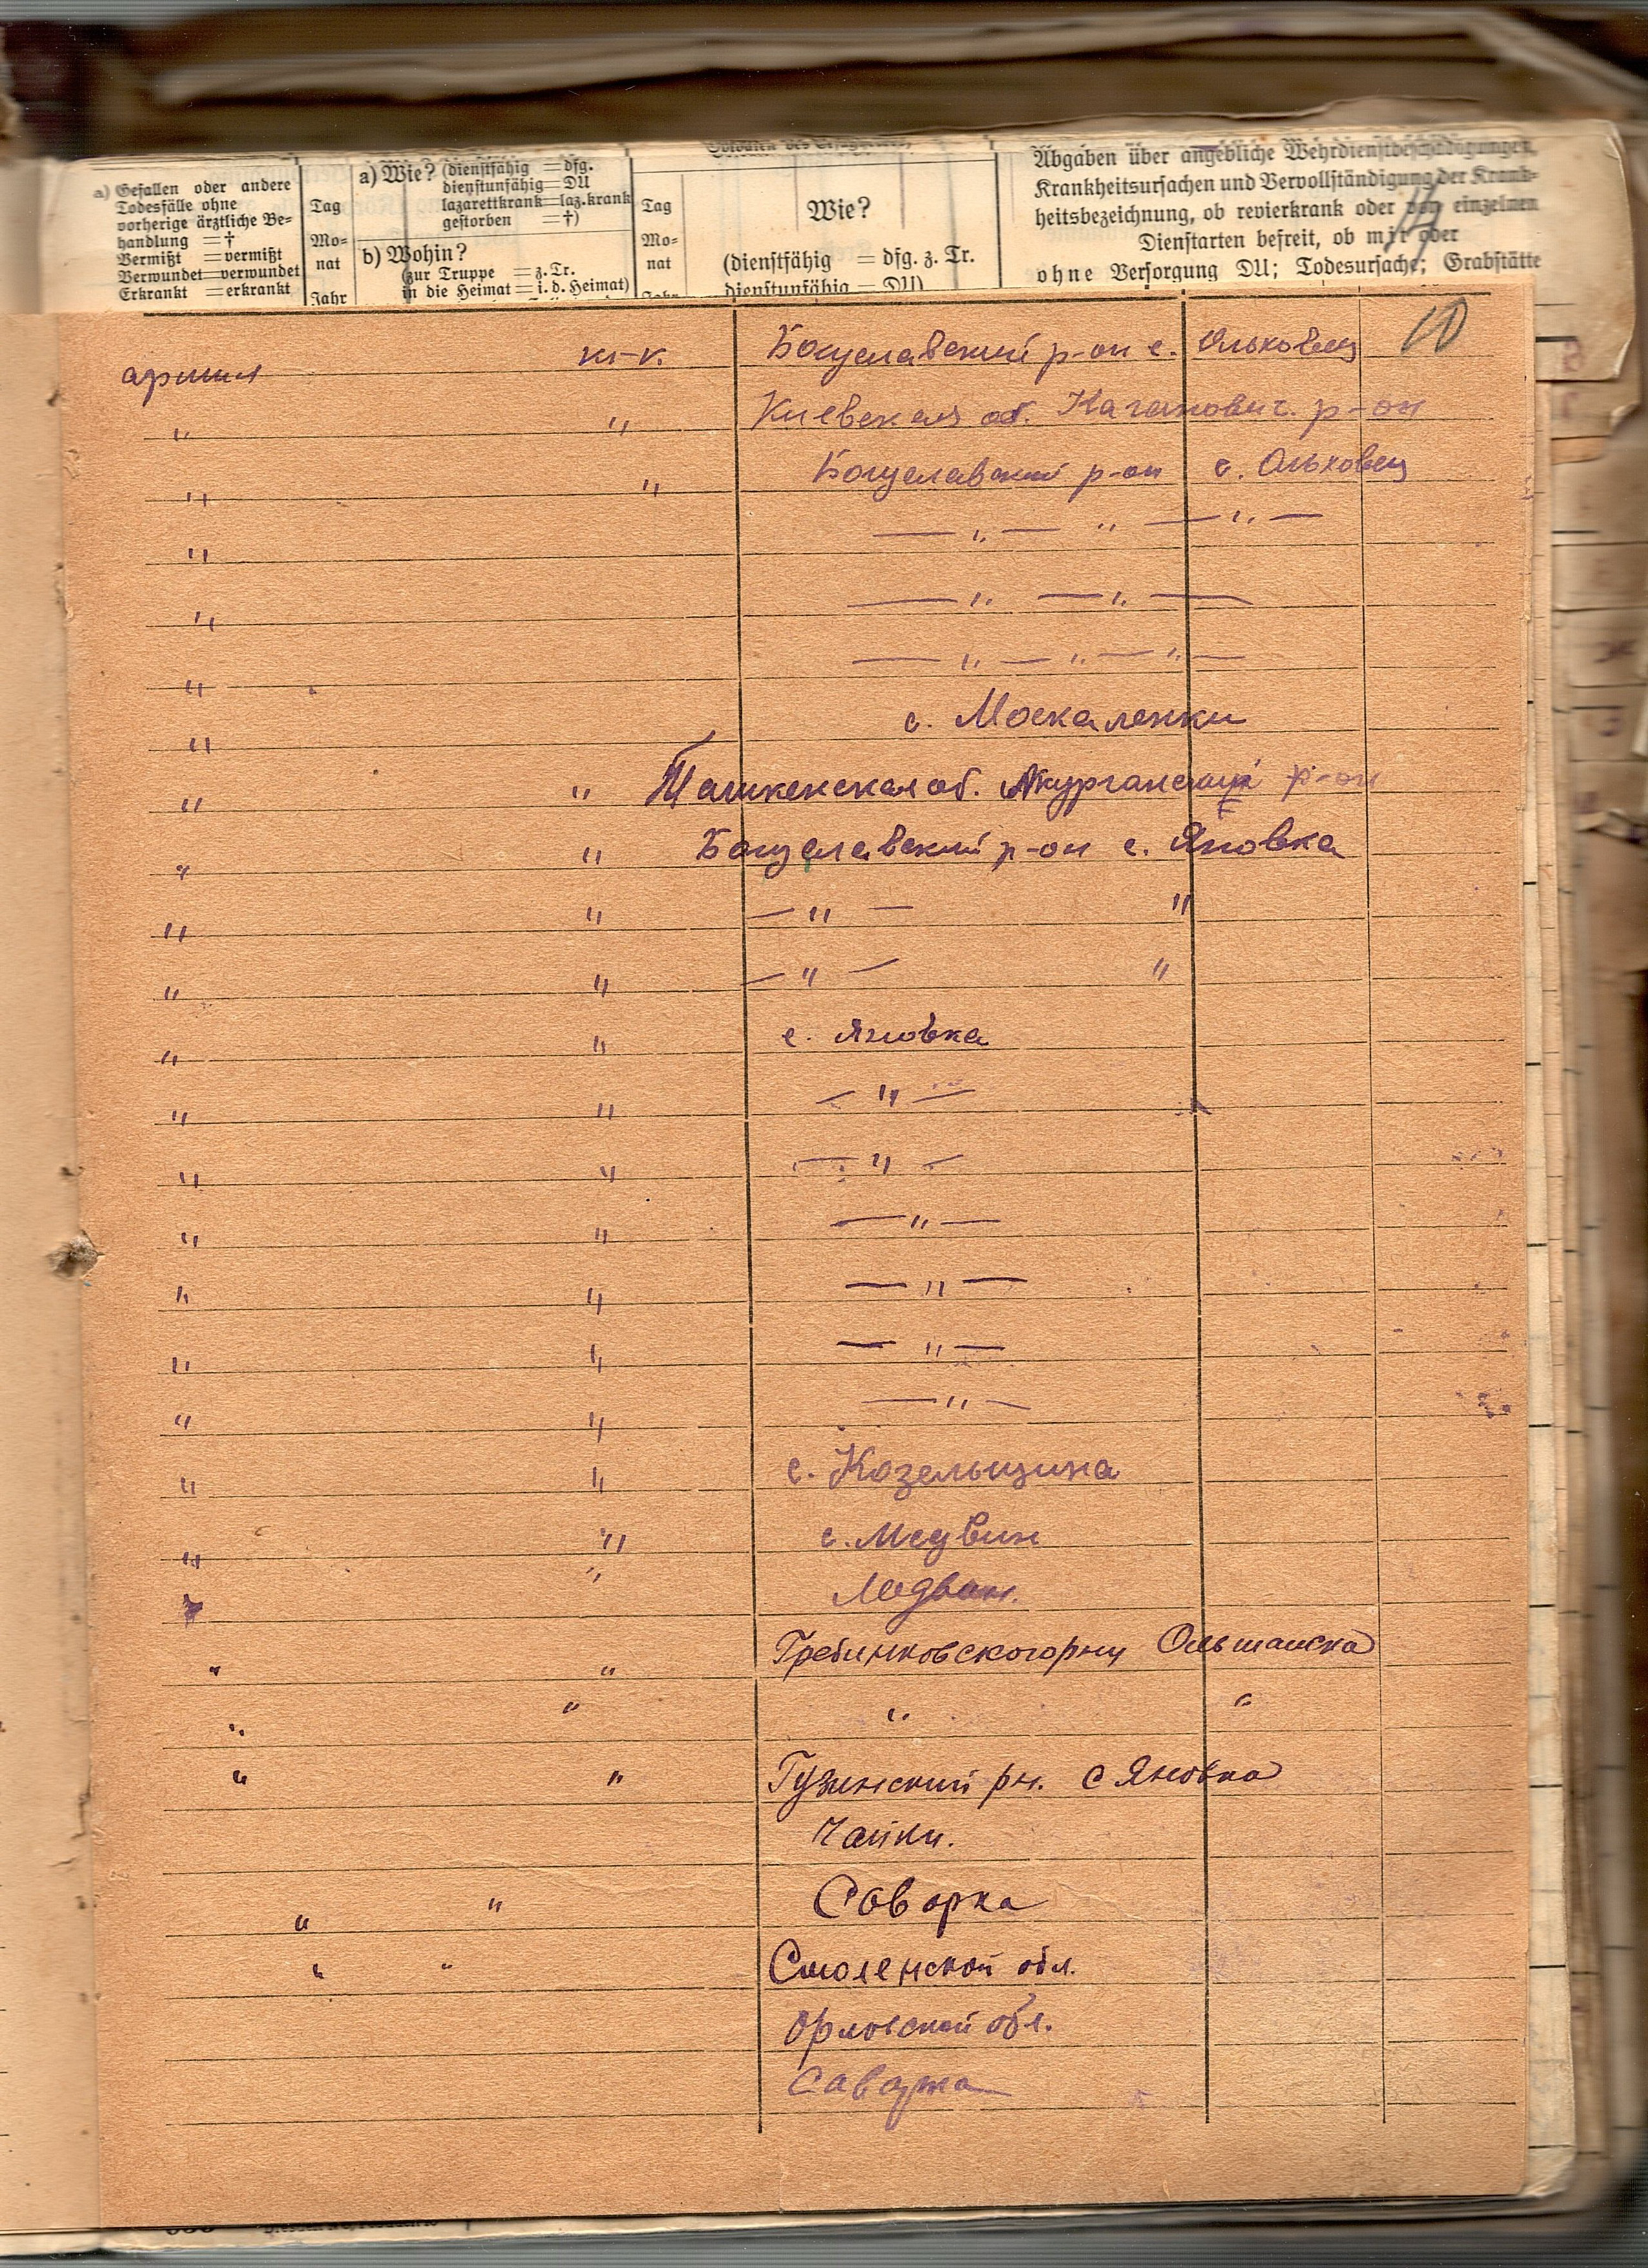 a) Gefallen oder andere
Todesfälle ohne
vorherige ärztliche Be-
handlung = †
Vermißt = vermißt
Verwundet = verwundet
Erkrankt = erkrankt
Tag
Mo-
nat
Jahr
a) Wie? (dienstfähig = dfg.
dienstunfähig = DU
lazarettkrank = laz.krank
gestorben = †)
b) Wohin?
(zur Truppe = z. Tr.
in die Heimat = i. d. Heimat)
Tag
Mo-
nat
Wie?
(dienstfähig = dfg. z. Tr.
dienstunfähig = DU)
Abgaben über angebliche Wehrdienstbeschädigungen,
Krankheitsursachen und Vervollständigung der Krank-
heitsbezeichnung, ob revierkrank oder von einzelnen
Dienstarten befreit, ob mit oder
ohne Versorgung DU; Todesursache; Grabstätte
10
армия кр-к. Богуславский р-он с. Ольховец
" " Киевская об. Каганович. р-он
" " Богуславский р-он с. Ольховец
" — " — " — " —
" — " — " —
" — " — " — " —
" с. Москаленки
" " Ташкенская об. Аккурганский р-он
" " Богуславский р-он с. Яновка
" " — " — "
" " — " — "
" " с. Яновка
" " — " —
" " — " —
" " — " —
" " — " —
" " — " —
" " — " —
" " с. Козельщина
" " с. Медвин
" Медвин.
" " Гребинковского рну Ольшанска
" " " "
" " Гузинский рн. с Яновка
Чайки.
" " Саварка
" " Смоленской обл.
Орловской обл.
Саварка